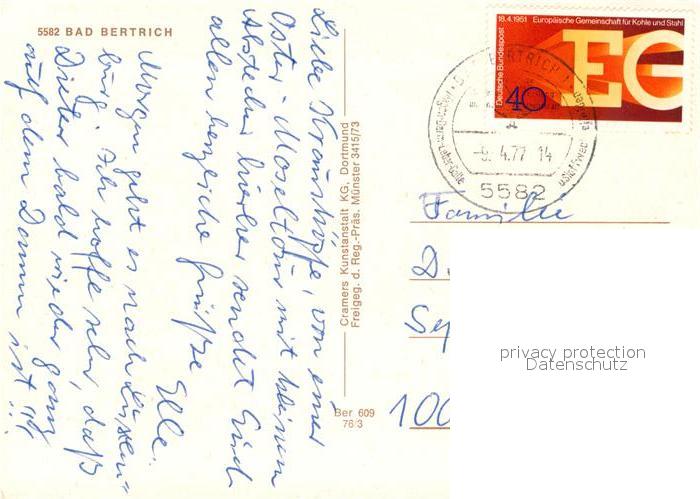 5582 BAD BERTRICH
Liebe Krauskopfs, von einer
Oster-Moseltour mit kleinem
Abstecher hierher sendet Euch
allen herzliche Grüße Elle.
Morgen geht es nach
burg. Ich hoffe sehr, daß
Dieter bald wieder ganz
auf dem Damm ist!!
Cramers Kunstanstalt KG, Dortmund
Freigeg. d. Reg.-Präs. Münster 3415/73
Ber 609
76 3
18.4.1951 Europäische Gemeinschaft für Kohle und Stahl
Deutsche Bundespost
EG
40
BERTRICH
-9.4.77 14
5582
Familie
D.
100
privacy protection
Datenschutz